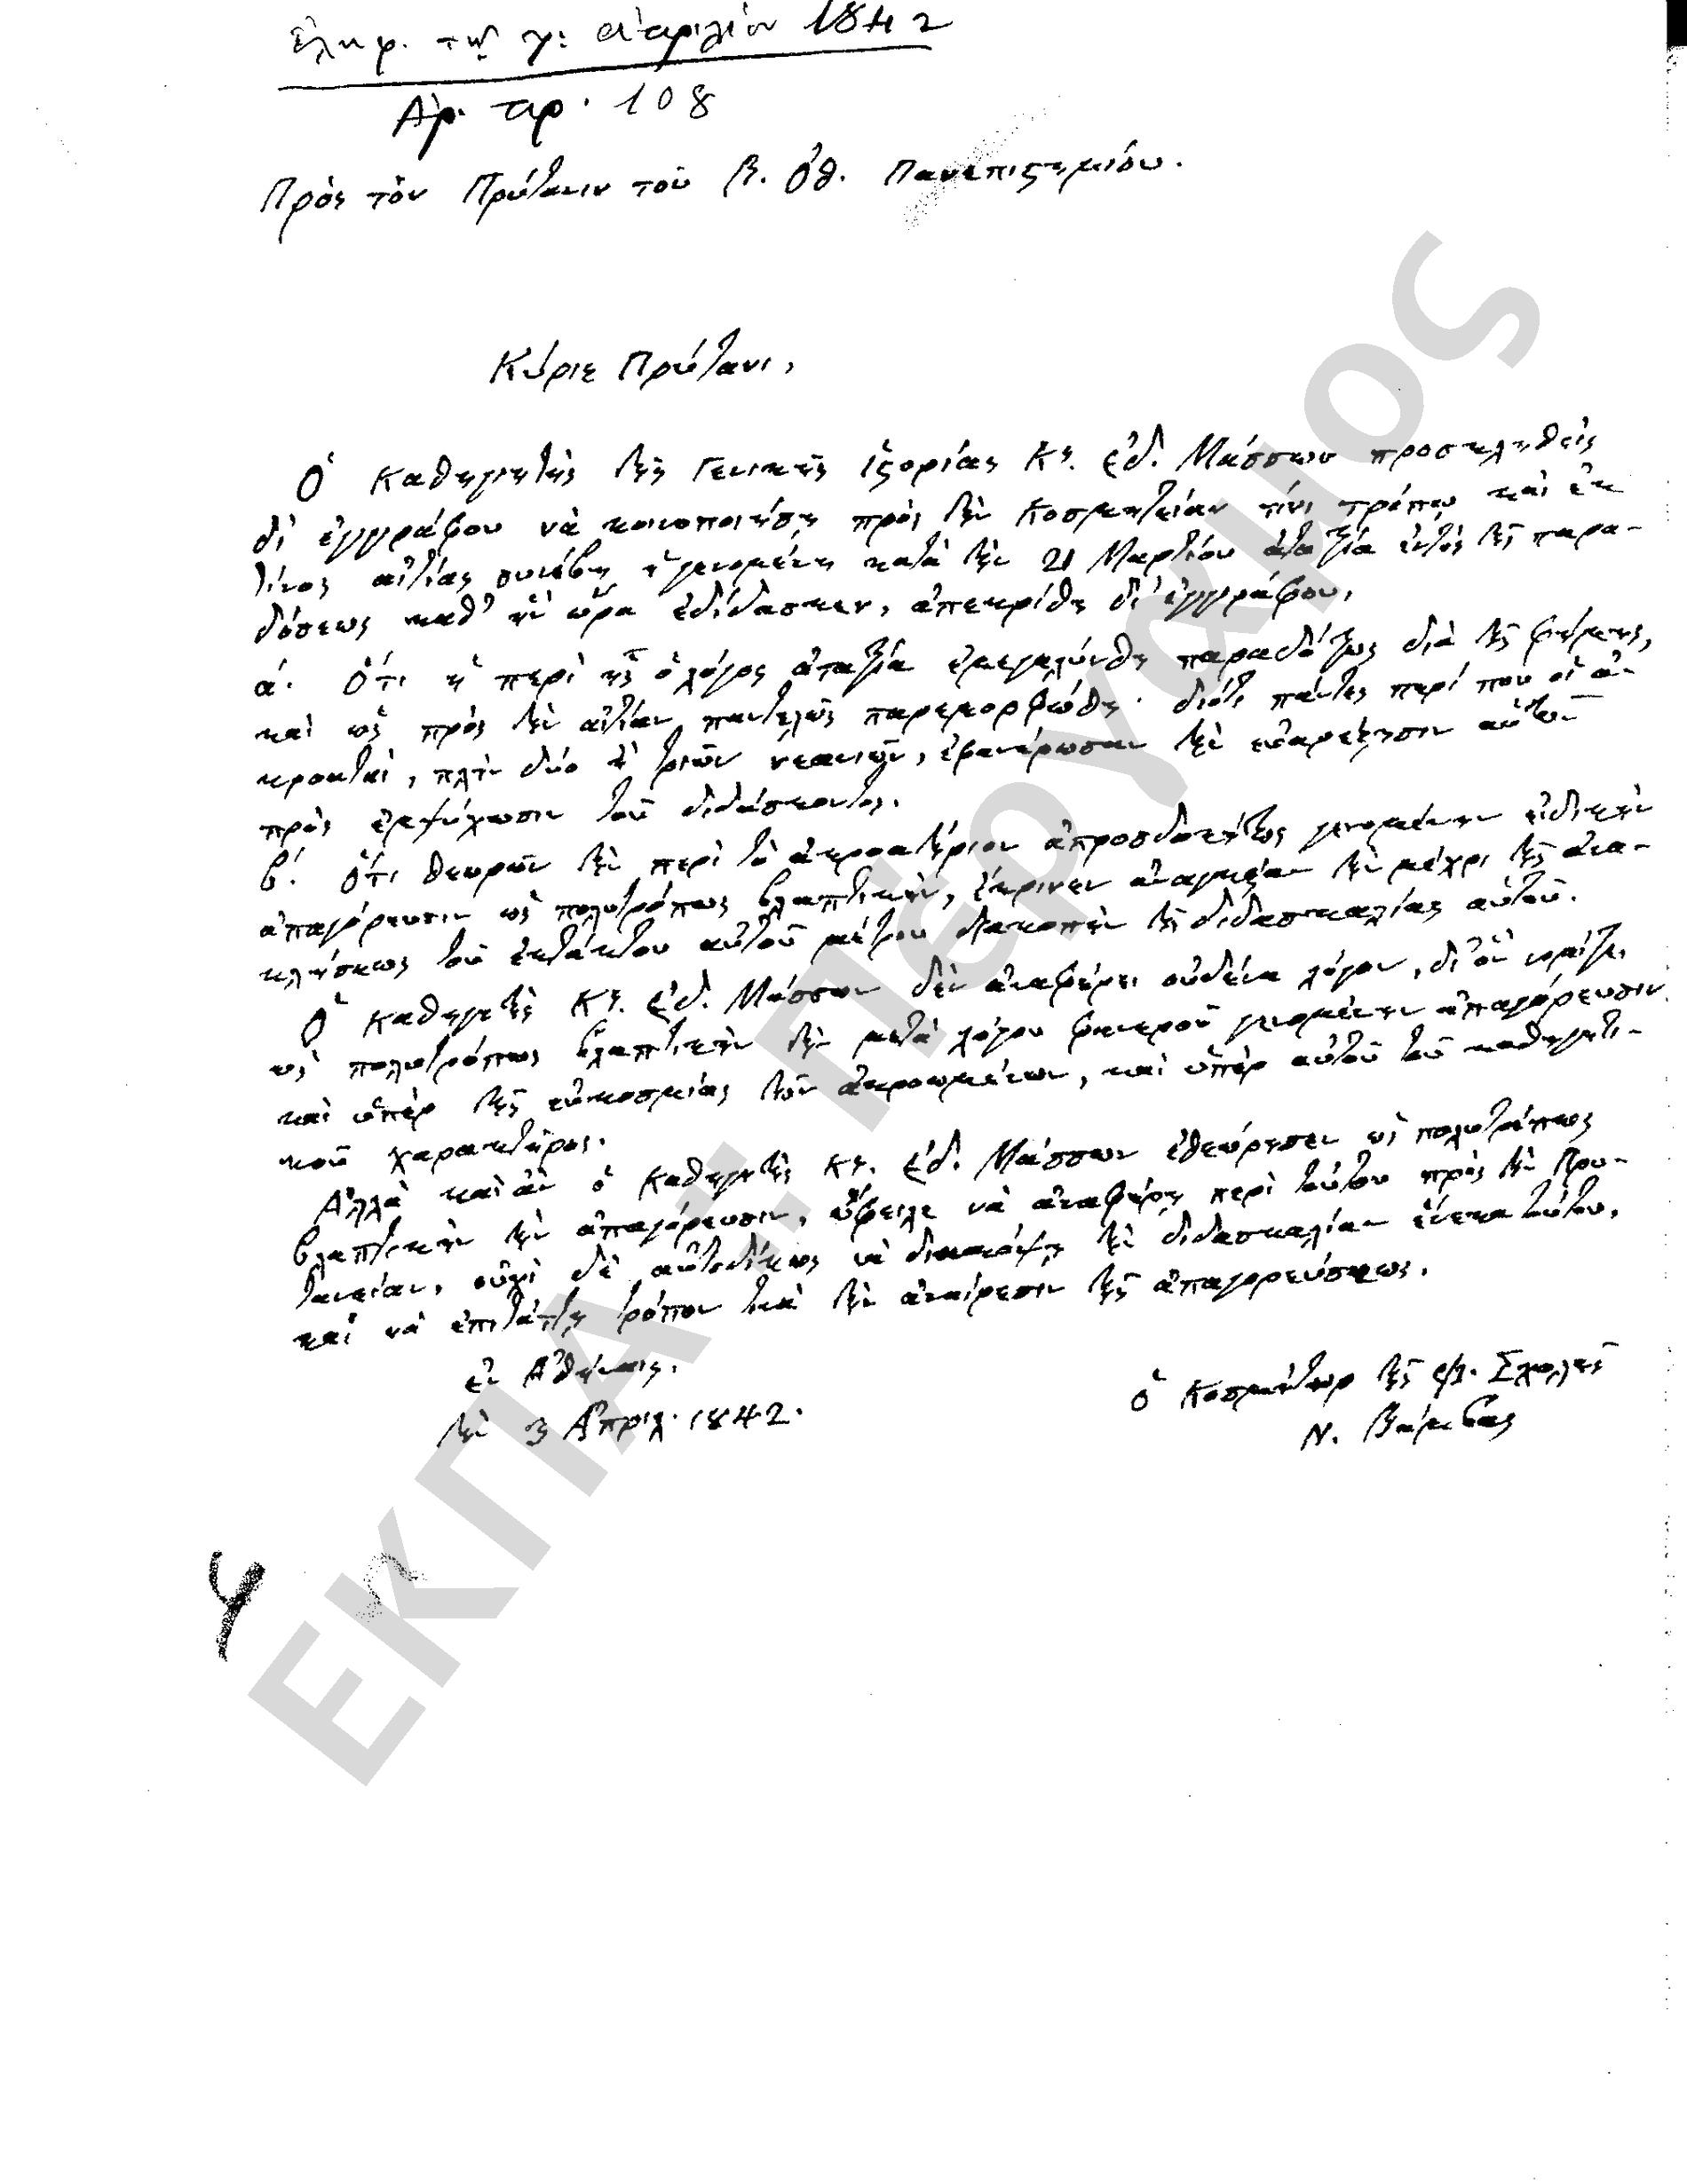 ἐλήφ. τῇ γ: ἀπριλίου 1842
Ἀρ. πρ. 108
Πρὸς τὸν Πρύτανιν τοῦ Β. Ὀθ. Πανεπιστημίου.
Κύριε Πρύτανι,
Ὁ Καθηγητὴς τῆς Γενικῆς ἱστορίας Κς. Ἐδ. Μάσσων προσκληθεὶς
δι' ἐγγράφου νὰ κοινοποιήσῃ πρὸς τὴν Κοσμητείαν τίνι τρόπῳ καὶ ἐκ
τίνος αἰτίας συνέβη ἡ γενομένη κατὰ τὴν 21 Μαρτίου ἀταξία ἐντὸς τῆς παρα-
δόσεως καθ' ἣν ὥρα ἐδίδασκεν, ἀπεκρίθη δι' ἐγγράφου,
ά. Ὅτι ἡ περὶ ἧς ὁ λόγος ἀταξία ἐμεγαλύνθη παραδόξως διὰ τῆς φήμης,
καὶ ὡς πρὸς τὴν αἰτίαν παντελῶς παρεμορφώθη· διότι πάντες περί που οἱ ἀ-
κροαταὶ, πλὴν δύο ἢ τριῶν νεανιῶν, ἐφανέρωσαν τὴν εὐαρέστησιν αὑτῶν
πρὸς ἐμψύχωσιν τοῦ διδάσκοντος.
β΄. Ὅτι θεωρῶν τὴν περὶ τὸ ἀκροατήριον ἀπροσδοκήτως γενομένην εἰδικὴν
ἀπαγόρευσιν ὡς πολυτρόπως βλαπτικὴν, ἔκρινεν ἀναγκαίαν τὴν μέχρι τῆς ἀνα-
κλήσεως τοῦ ἐκτάκτου αὐτοῦ μέτρου διακοπὴν τῆς διδασκαλίας αὑτοῦ.
Ὁ Καθηγητὴς Κς. Ἐδ. Μάσσων δὲν ἀναφέρει οὐδένα λόγον, δι' ὃν νομίζει
ὡς πολυτρόπως βλαπτικὴν τὴν μετὰ λόγου φανεροῦ γενομένην ἀπαγόρευσιν
καὶ ὑπὲρ τῆς εὐκοσμίας τῶν ἀκροωμένων, καὶ ὑπὲρ αὐτοῦ τοῦ καθηγητι-
κοῦ χαρακτῆρος.
Ἀλλὰ καὶ ἂν ὁ Καθηγητὴς Κς. Ἐδ. Μάσσων ἐθεώρησεν ὡς πολυτρόπως
βλαπτικὴν τὴν ἀπαγόρευσιν, ὤφειλε νὰ ἀναφέρῃ περὶ τούτου πρὸς τὴν Πρυ-
τανείαν, οὐχὶ δὲ αὐτοδίκως νὰ διακόψῃ τὴν διδασκαλίαν ἕνεκα τούτου,
καὶ νὰ ἐπιτάττῃ τρόπον τινὰ τὴν ἀναίρεσιν τῆς ἀπαγορεύσεως.
ἐν Ἀθήναις,
τὴν 3 Ἀπριλ. 1842.
ὁ Κοσμήτωρ τῆς φλ. Σχολῆς
Ν. Βάμβας
ΕΚΠΑ - ΠΕΡΓΑΜΟΣ